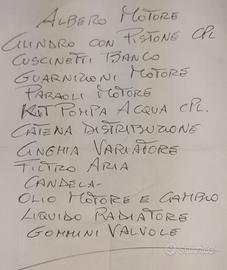 ALBERO MOTORE
CILINDRO CON PISTONE CPL
CUSCINETTI BANCO
GUARNIZIONI MOTORE
PARAOLI MOTORE
KIT POMPA ACQUA CPL.
CATENA DISTRIBUZIONE
CINGHIA VARIATORE
FILTRO ARIA
CANDELA-
OLIO MOTORE E CAMBIO
LIQUIDO RADIATORE
GOMMINI VALVOLE
subito